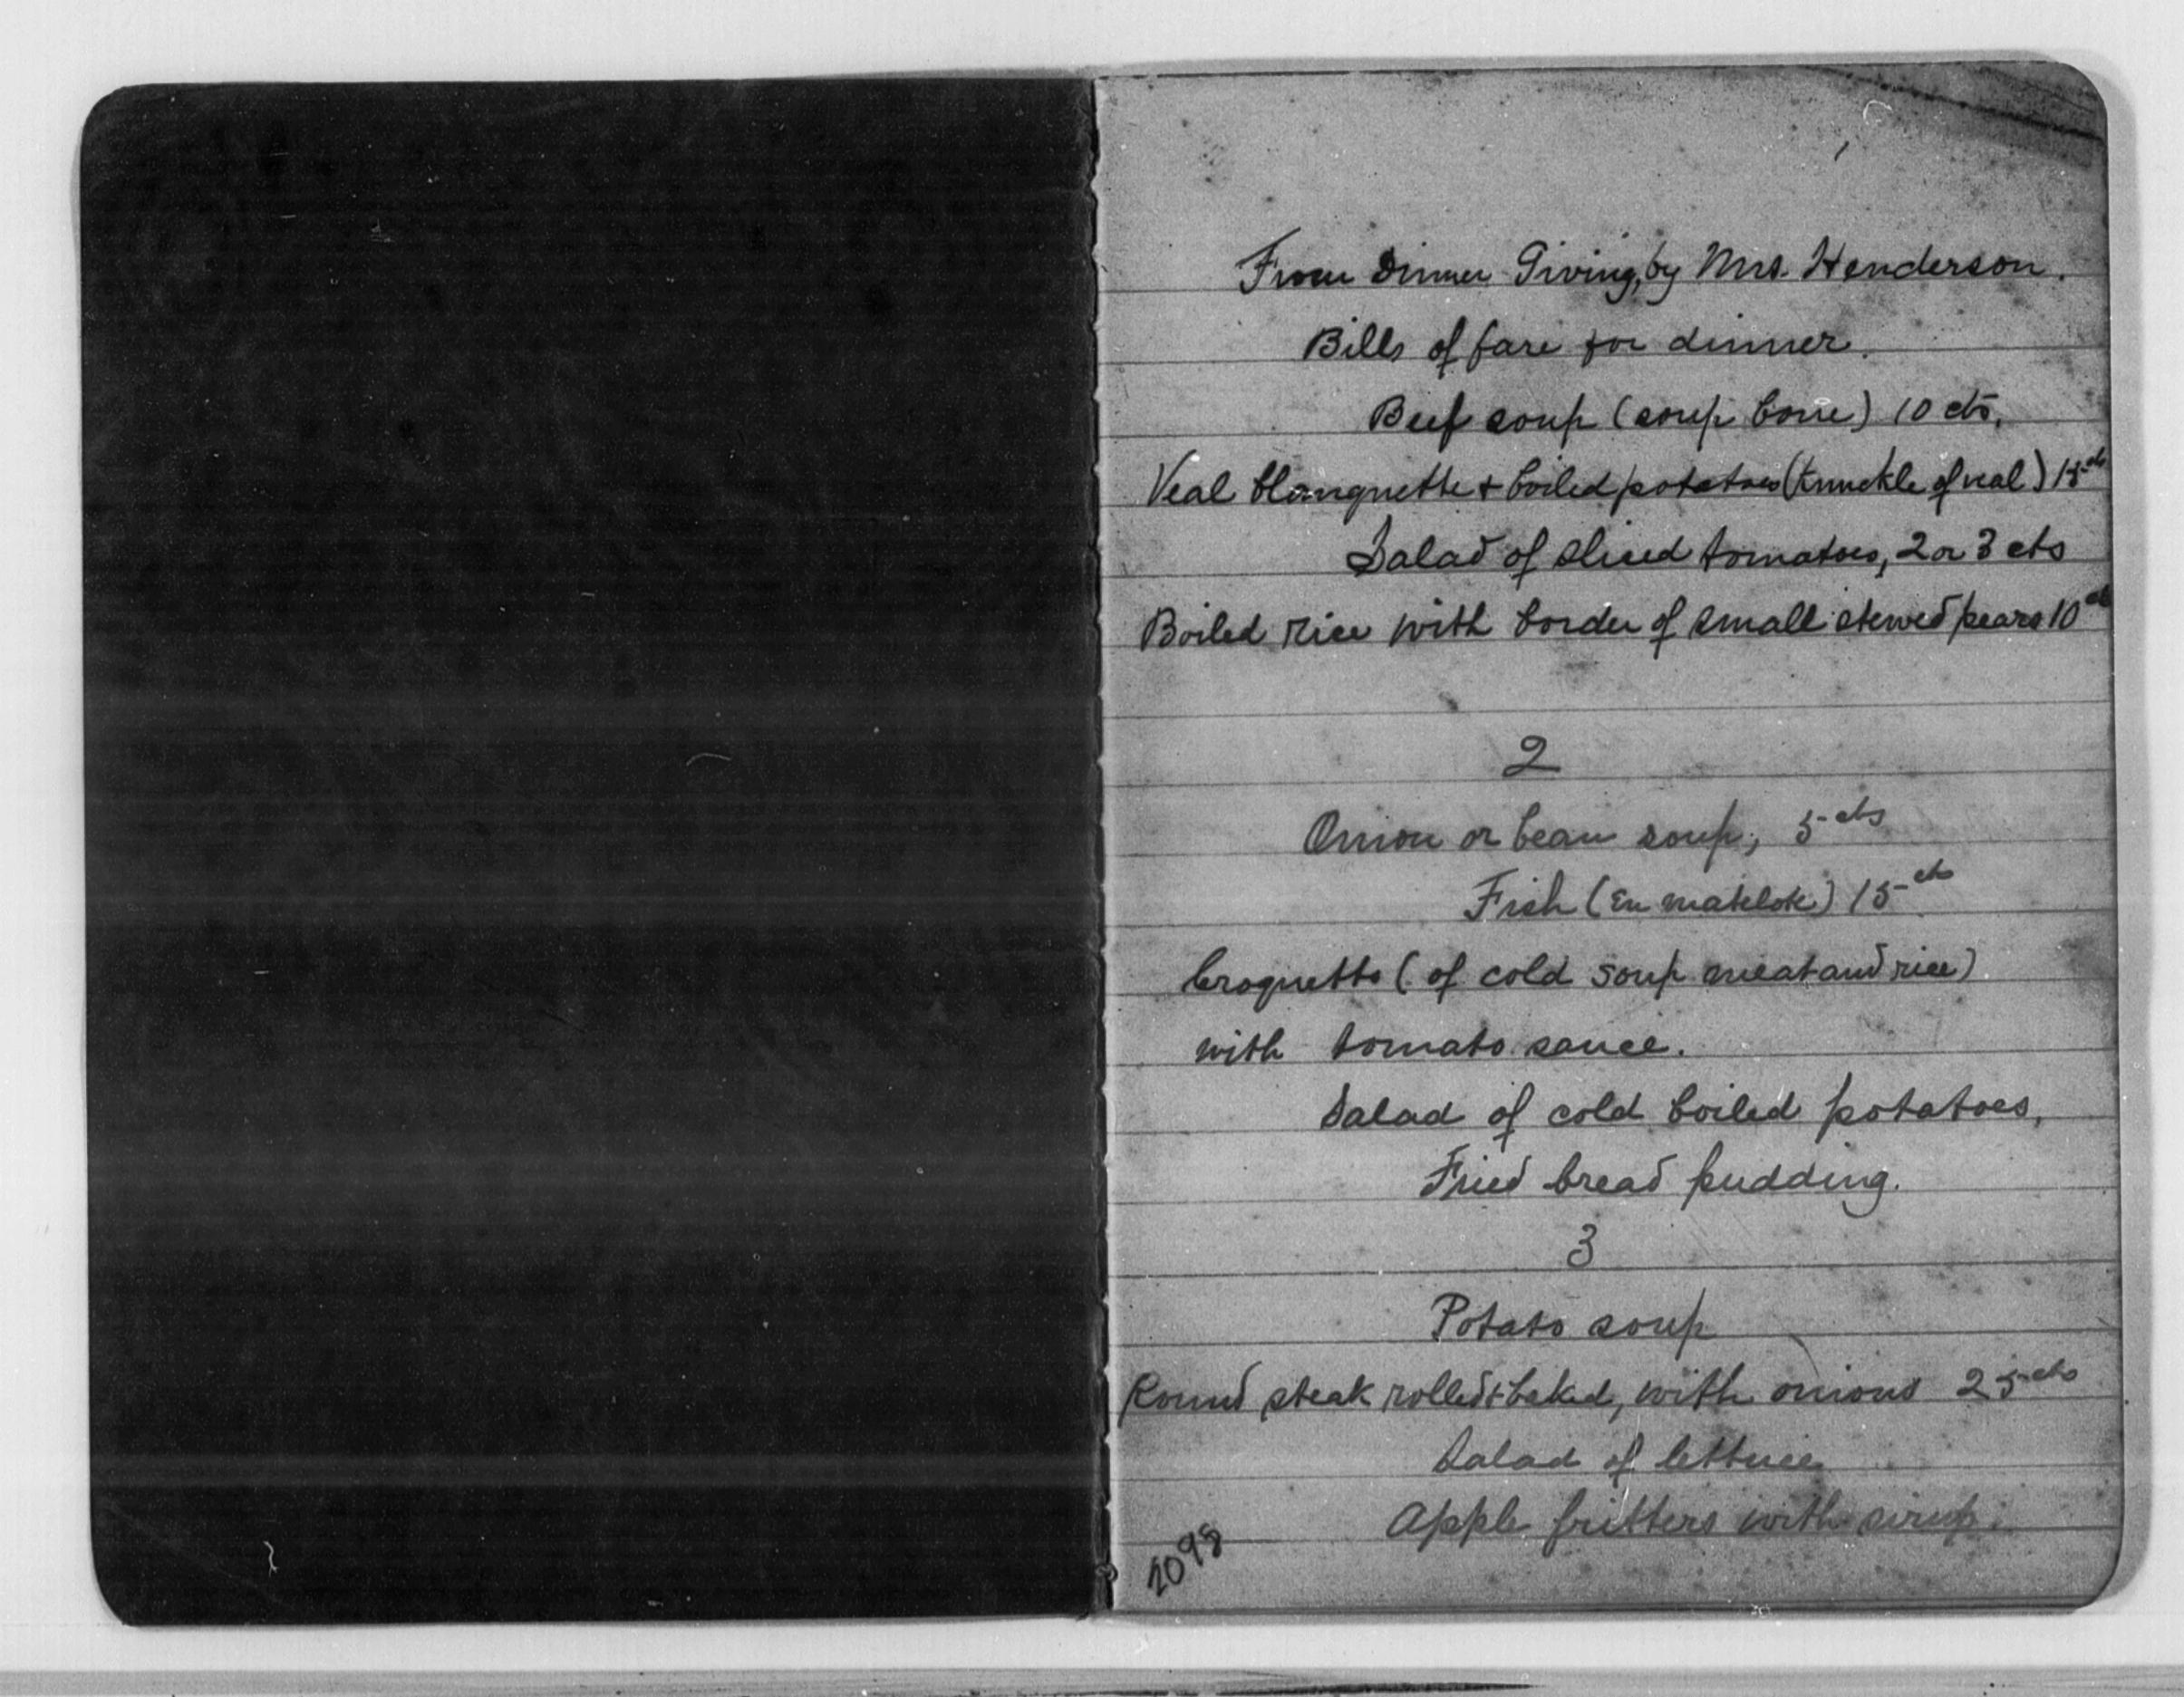 From Dinner Giving, by Mrs. Henderson.
Bills of fare for dinner.
Beef soup (soup bone) 10 cts.
Veal blanquette + boiled potatoes (knuckle of veal) 15 cts
Salad of sliced tomatoes, 2 or 3 cts
Boiled rice with border of small stewed pears 10 cts
2
Onion or bean soup, 5 cts
Fish (en matelote) 15 cts
Croquetts (of cold soup meat and rice)
with tomato sauce.
Salad of cold boiled potatoes,
Fried bread pudding.
3
Potato soup
Round steak rolled + baked, with onions 25 cts
Salad of lettuce
Apple fritters with sirup.
2098